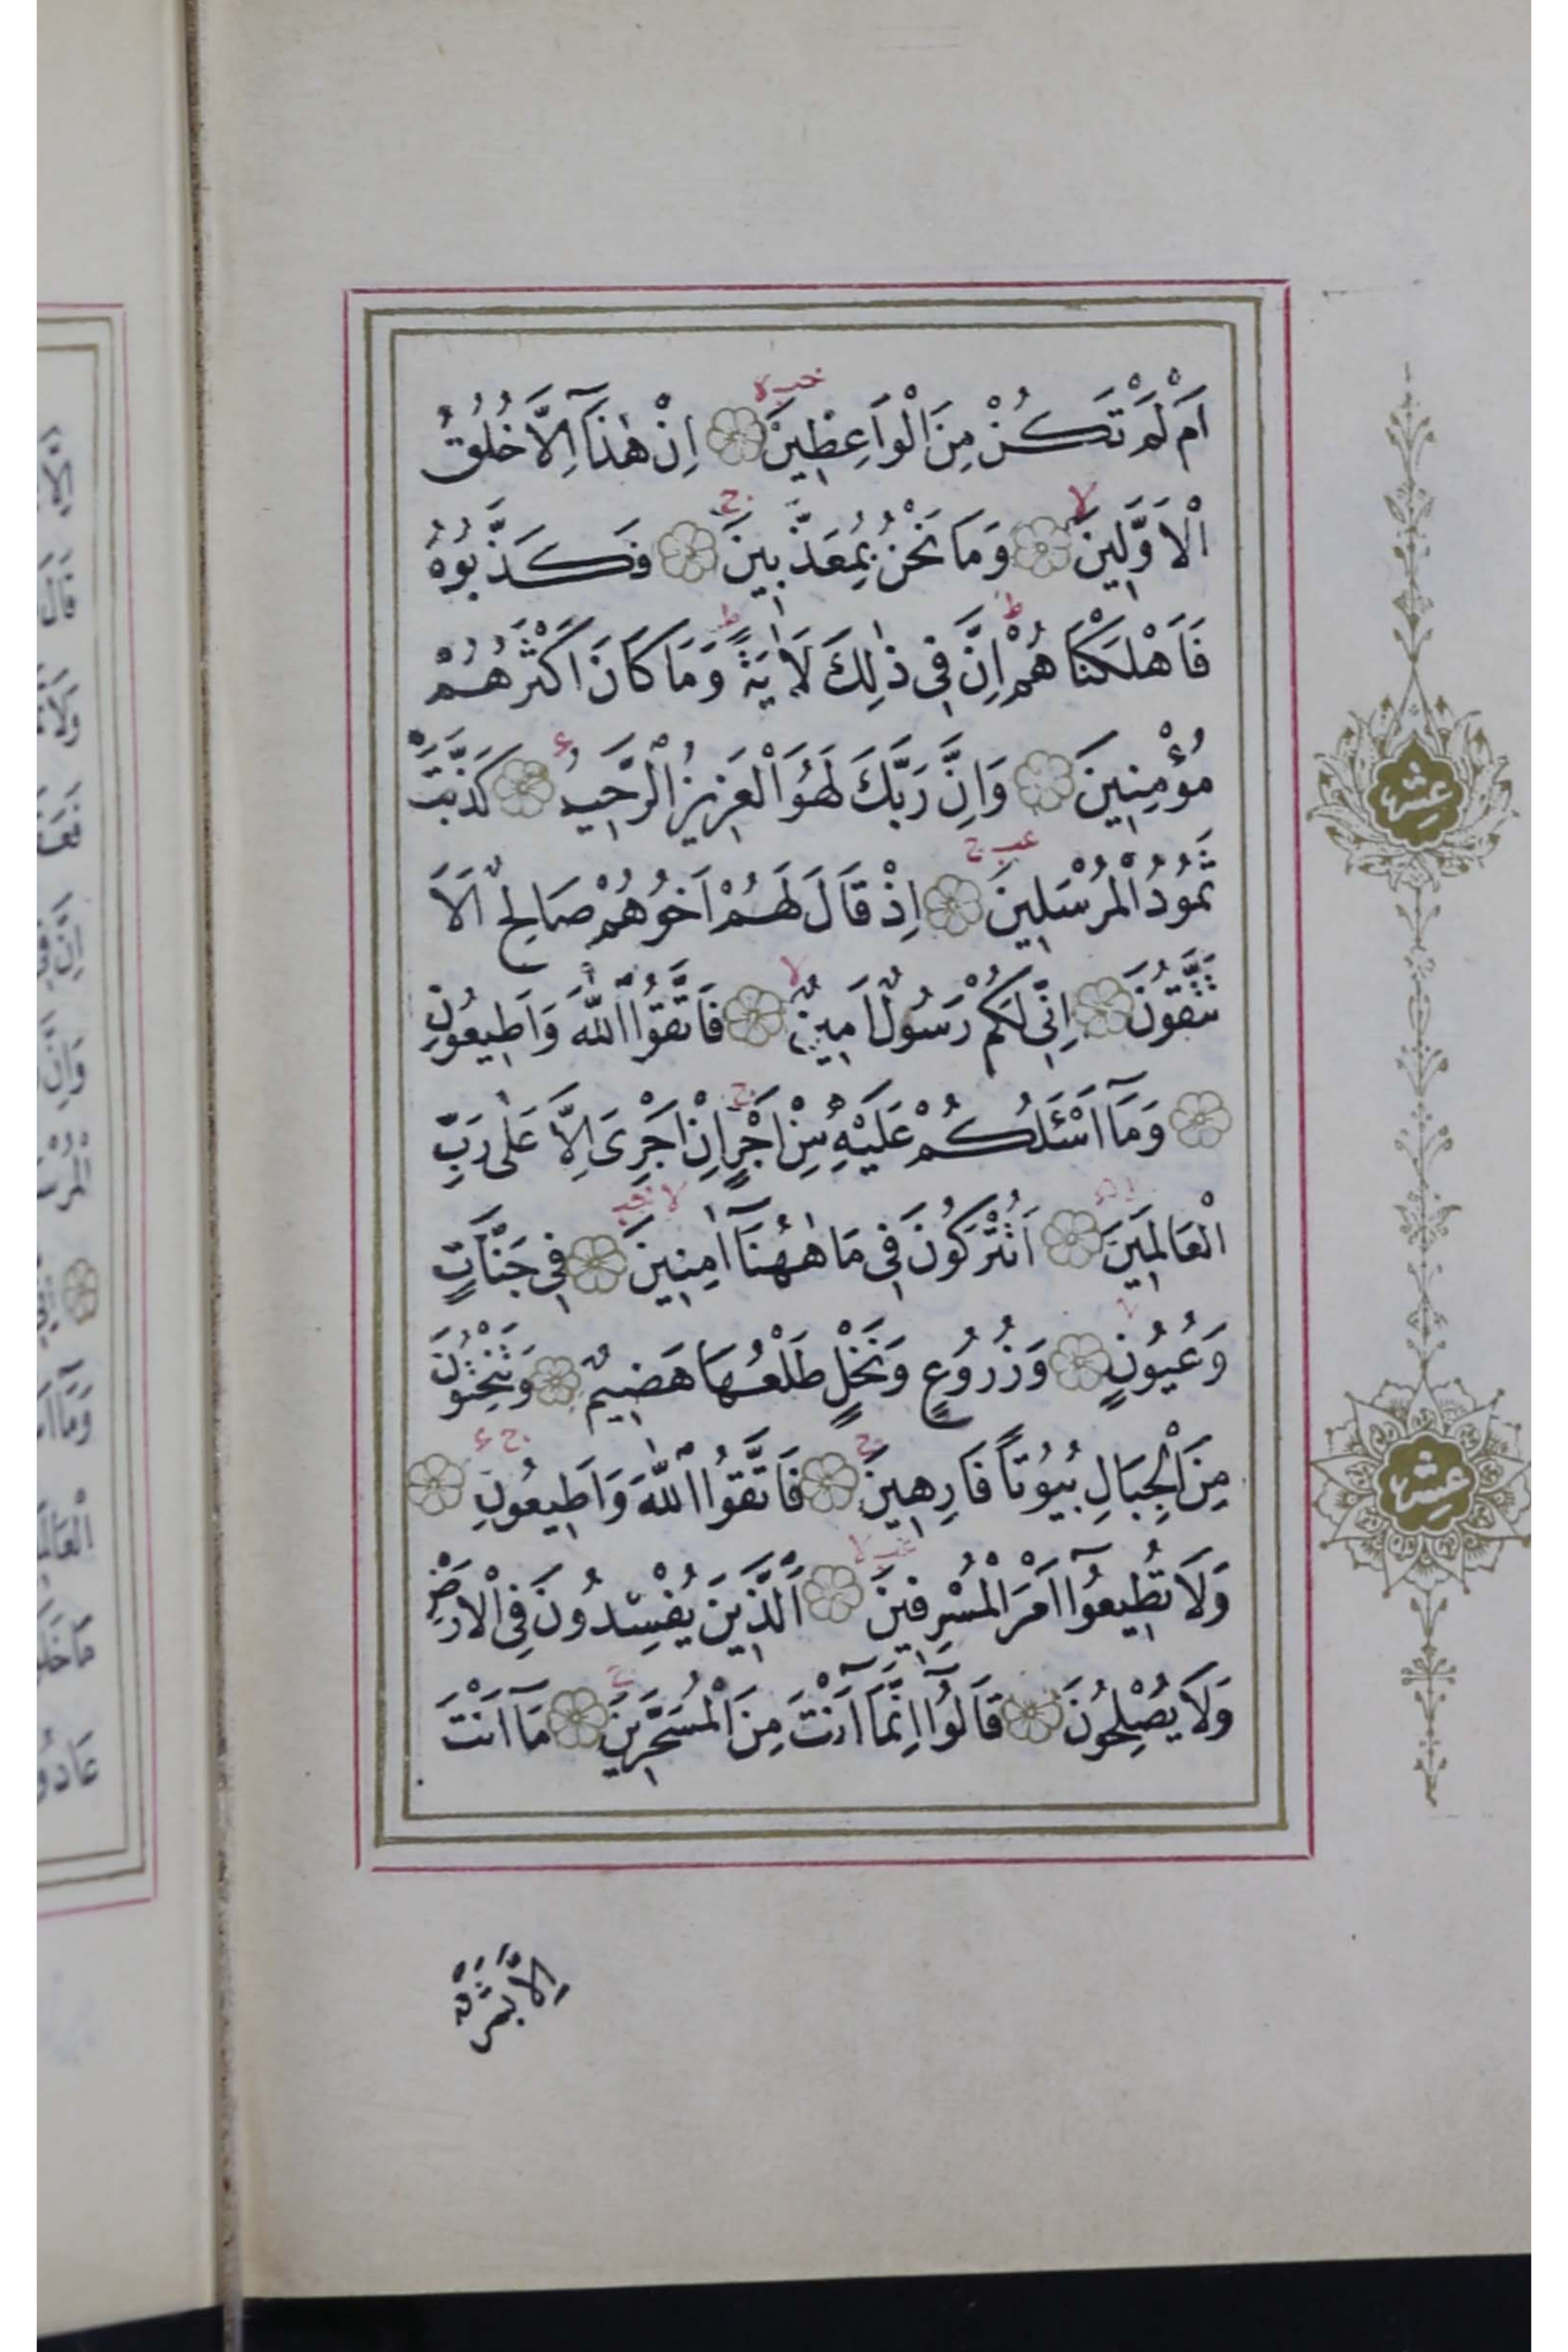 اَمْ لَمْ تَكُنْ مِنَ الْوَاعِظِينَ اِنْ هٰذَآ اِلَّا خُلُقُ
الْاَوَّلِينَ وَمَا نَحْنُ بِمُعَذَّبِينَ فَكَذَّبُوهُ
فَاَهْلَكْنَاهُمْ اِنَّ فِي ذٰلِكَ لَاٰيَةً وَمَا كَانَ اَكْثَرُهُمْ
مُؤْمِنِينَ وَاِنَّ رَبَّكَ لَهُوَ الْعَزِيزُ الرَّحِيمُ كَذَّبَتْ
ثَمُودُ الْمُرْسَلِينَ اِذْ قَالَ لَهُمْ اَخُوهُمْ صَالِحٌ اَلَا
تَتَّقُونَ اِنِّي لَكُمْ رَسُولٌ اَمِينٌ فَاتَّقُوا اللّٰهَ وَاَطِيعُونِ
وَمَآ اَسْئَلُكُمْ عَلَيْهِ مِنْ اَجْرٍ اِنْ اَجْرِيَ اِلَّا عَلٰى رَبِّ
الْعَالَمِينَ اَتُتْرَكُونَ فِي مَا هٰهُنَآ اٰمِنِينَ فِي جَنَّاتٍ
وَعُيُونٍ وَزُرُوعٍ وَنَخْلٍ طَلْعُهَا هَضِيمٌ وَتَنْحِتُونَ
مِنَ الْجِبَالِ بُيُوتًا فَارِهِينَ فَاتَّقُوا اللّٰهَ وَاَطِيعُونِ
وَلَا تُطِيعُوٓا اَمْرَ الْمُسْرِفِينَ اَلَّذِينَ يُفْسِدُونَ فِي الْاَرْضِ
وَلَا يُصْلِحُونَ قَالُوٓا اِنَّمَآ اَنْتَ مِنَ الْمُسَحَّرِينَ مَآ اَنْتَ
اِلَّا بَشَرٌ
عشر
عشر